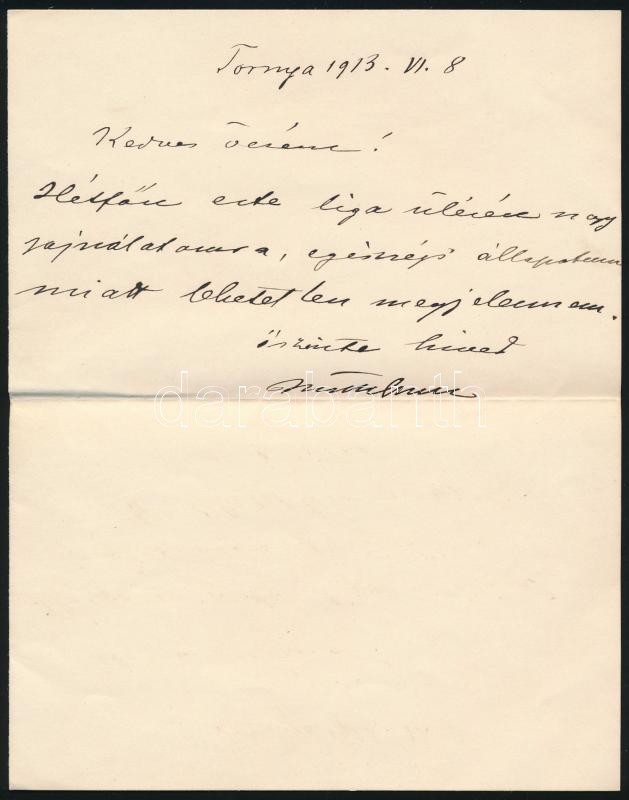 Tornya 1913. VI. 8
Kedves öcsém!
Hétfőn este liga ülésén nagy
sajnálatomra, egésségi állapotom
miatt lehetetlen megjelennem.
őszinte hived
darabanth